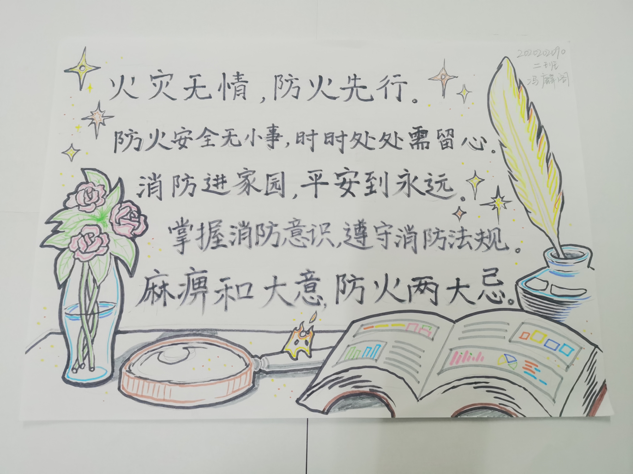 火灾无情,防火先行。
防火安全无小事,时时处处需留心。
消防进家园,平安到永远。
掌握消防意识,遵守消防法规。
麻痹和大意,防火两大忌。